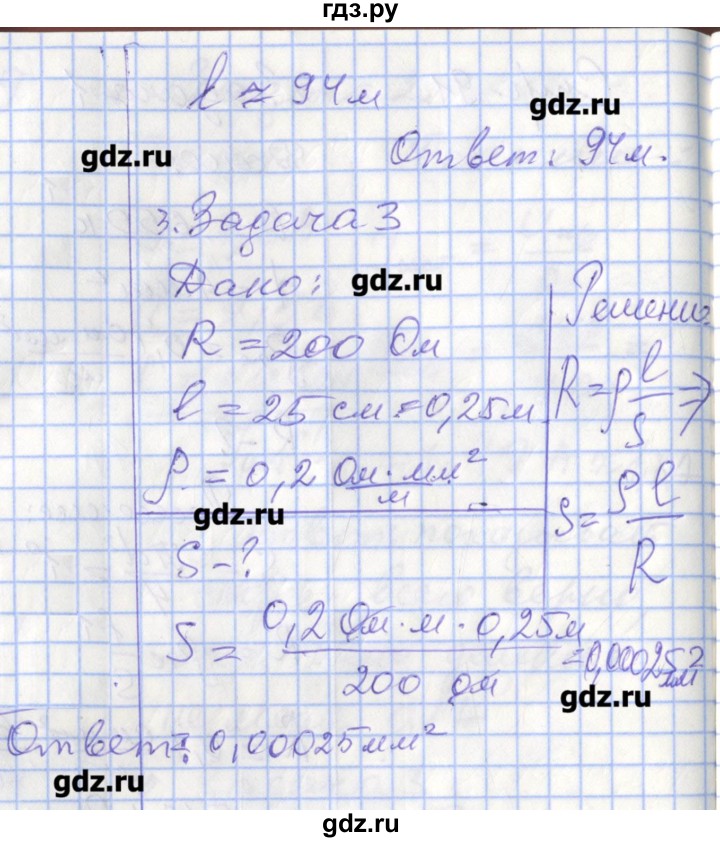 гдз.ру
l ≈ 94 м
gdz.ru
gdz.ru
Ответ: 94 м.
3. Задача 3
Дано:
gdz.ru
Решение:
R = 200 Ом
l = 25 см = 0,25 м
R = ρ l/S ⇒
ρ = 0,2 Ом·мм²/м
gdz.ru
S = ρl/R
S - ?
S = 0,2 Ом·м·0,25м / 200 ом = 0,00025 мм²
gdz.ru
Ответ: 0,00025 мм²
gdz.ru
gdz.ru